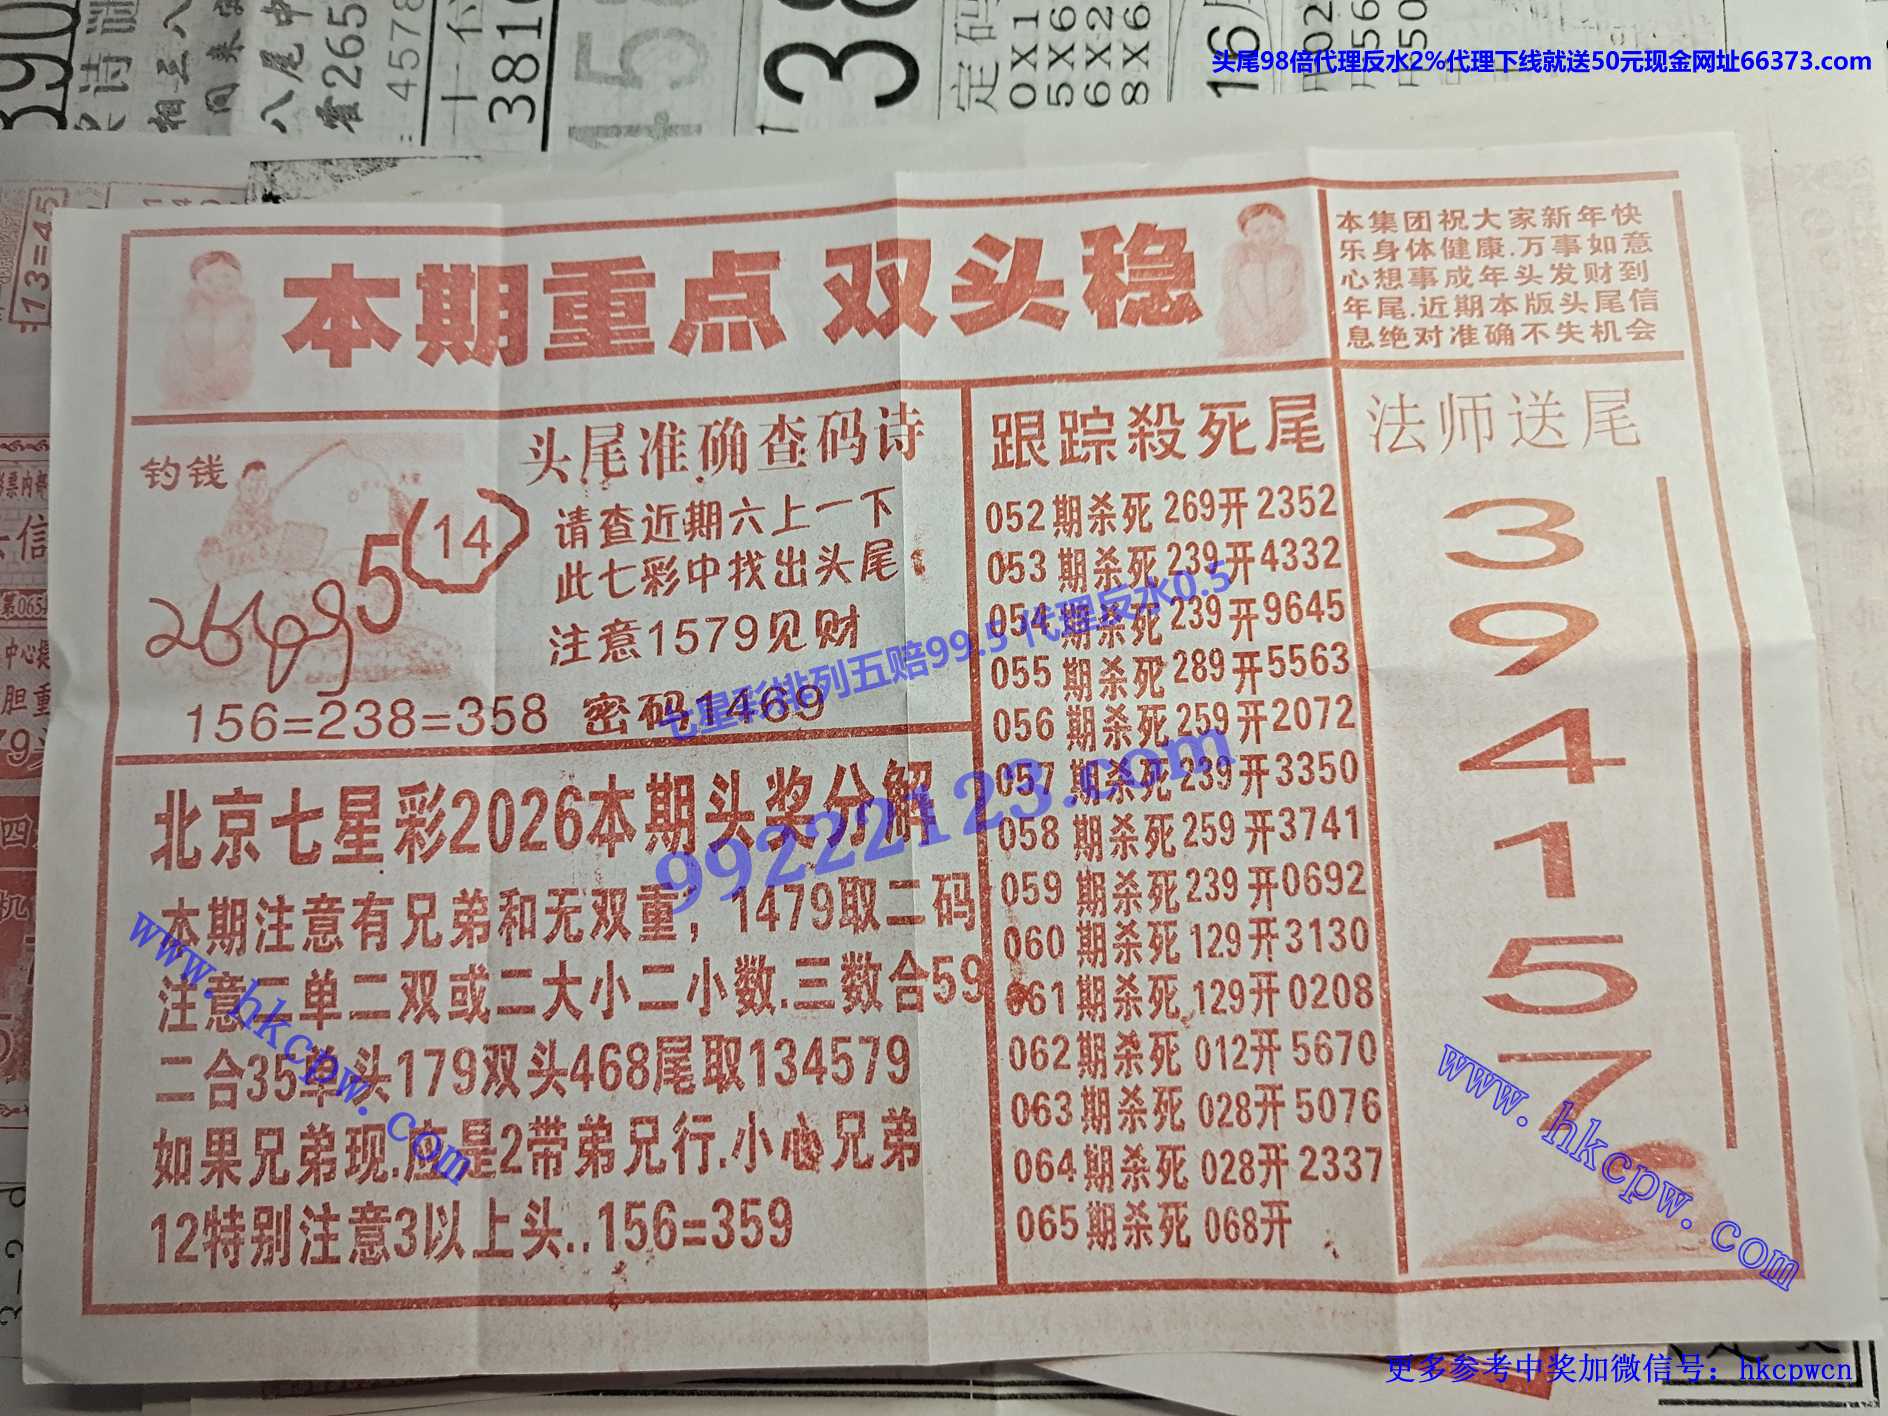 头尾98倍代理反水2%代理下线就送50元现金网址66373.com
本期重点 双头稳
本集团祝大家新年快
乐身体健康.万事如意
心想事成年头发财到
年尾.近期本版头尾信
息绝对准确不失机会
钓钱
26493
5
14
头尾准确查码诗
请查近期六上一下
此七彩中找出头尾
注意1579见财
156=238=358 密码1469
七星彩排列五赔99.5 代理反水0.5
99222123.com
北京七星彩2026本期头奖分解
本期注意有兄弟和无双重，1479取二码
注意二单二双或二大小二小数.三数合59
二合35单头179双头468尾取134579
如果兄弟现.应是2带弟兄行.小心兄弟
12特别注意3以上头..156=359
跟踪殺死尾
052期杀死269开2352
053期杀死239开4332
054期杀死239开9645
055期杀死289开5563
056期杀死259开2072
057期杀死239开3350
058期杀死259开3741
059期杀死239开0692
060期杀死129开3130
061期杀死129开0208
062期杀死012开5670
063期杀死028开5076
064期杀死028开2337
065期杀死068开
法师送尾
3
9
4
1
5
7
www.hkcpw.com
www.hkcpw.com
更多参考中奖加微信号：hkcpwcn
13=45